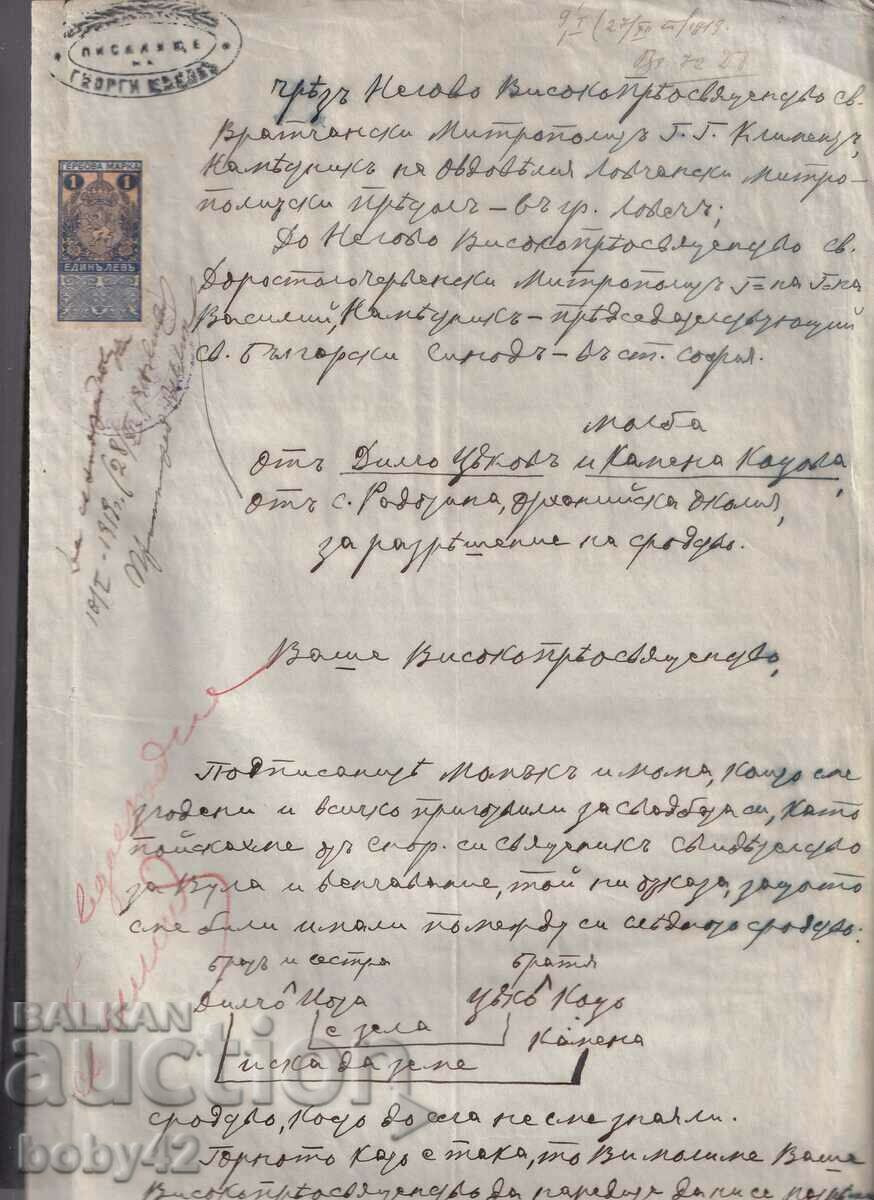 ПИСАЛИЩЕ
НА
ГЕОРГИ
ГЕРБОВА МАРКА
1 1
ЕДИНЪ ЛЕВЪ
чрѣзъ Негово Високопрѣосвященство св.
Вратчански Митрополитъ Г. Г. Климентъ,
Намѣстникъ на Овдовѣлия Ловчански Митро-
политски прѣстолъ – въ гр. Ловечъ;
До Негово Високопрѣосвященство св.
Доростолочервенски Митрополитъ Г-на Г-на
Василий, Намѣстникъ – прѣдседателствующий
св. Български Синодъ – въ ст. София.
молба
отъ Дилчо Цѣковъ и Камена Коцова,
отъ с. Радотина, орханийска околия,
за разрѣшение на сродство.
Ваше Високопрѣосвященство,
Подписанитѣ момъкъ и мома, които сме
згодени и всичко приготвили за свадбата си, като
поискахме отъ енор. си священикъ свидѣтелство
за вула и венчавание, той ни отказа, защото
сме били имали помежду си слѣдното сродство:
братъ и сестра братя
Дилчо Цота Цѣко Коцо
е зела Камена
иска да земе
сродство, което до сега не сме знаяли.
Горното като е така, то Ви молиме Ваше
Високопрѣосвященство да наредите да ни се
BALKAN
auction
boby42